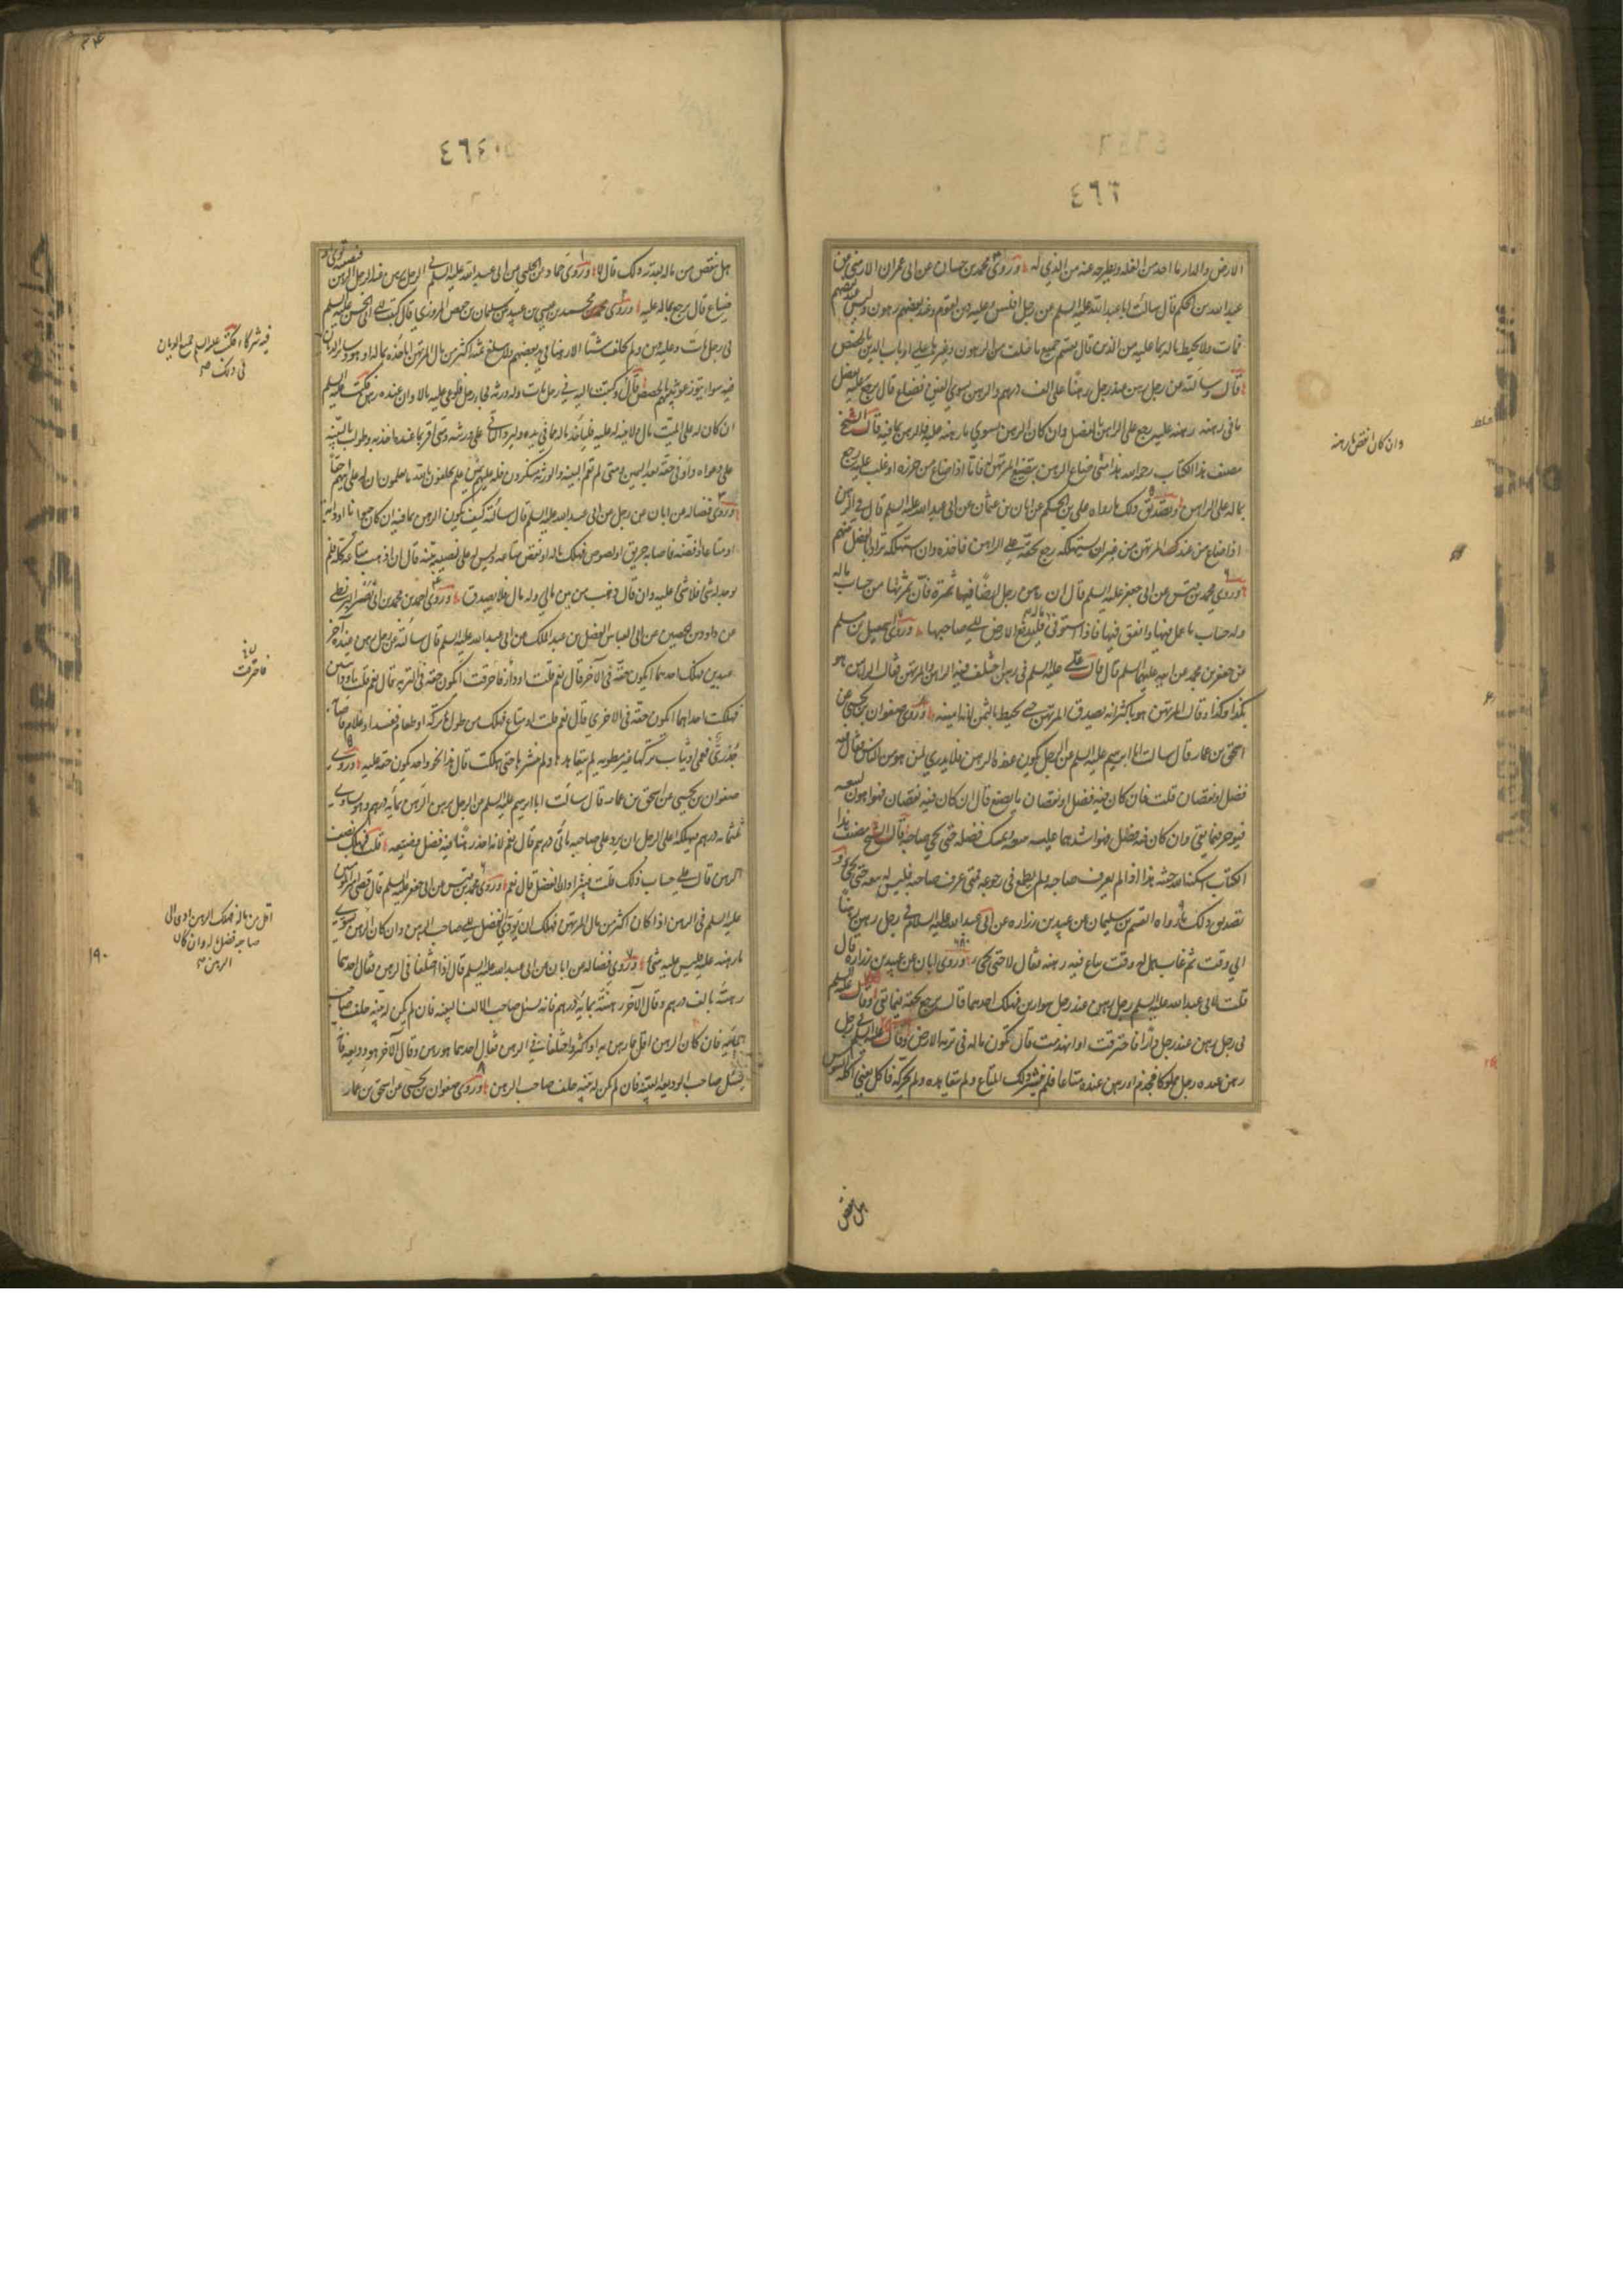 ٤٦٦
الارض والدار ما اخذ من الغلة ويطرحه عنه من الذي له وروى محمد بن حسان عن ابى عمران الارمنى عن
عبد الله بن الحكم قال سالت ابا عبد الله عليه السلم عن رجل افلس وعليه دين لقوم وعند بعضهم رهون وليس عند بعضهم
فمات ولا يحيط ماله بما عليه من الدين قال يقسم جميع ما خلف من الرهون وغيرها على ارباب الدين بالحصص
قال وسالته عن رجل رهن عند رجل رهنا على الف درهم والرهن يسوي الفين فضاع قال يرجع عليه بفضل
ما فى رهنه رهنه عليه رجع على الراهن بالفضل وان كان الرهن يسوي ما رهنه عليه فالرهن بما فيه قال الشيخ
مصنف هذا الكتاب رحمه الله هذا متى ضاع الرهن بتضييع المرتهن له فاما اذا ضاع من حرزه او غلب عليه رجع
بماله على الراهن وتصديق ذلك ما رواه على بن الحكم عن ابان بن عثمان عن ابى عبد الله عليه السلم قال فى الرهن
اذا ضاع من عند المرتهن من غير ان يستهلكه رجع بحقه على الراهن فاخذه وان استهلكه ترادا الفضل بينهم
وروى محمد بن قيس عن ابى جعفر عليه السلم قال ان رهن رجل ارضا فيها ثمرة فان ثمرتها من حساب ماله
وله حساب ما عمل فيها وانفق فيها فاذا استوفى ماله فليدفع الارض الى صاحبها وروى اسمعيل بن مسلم
عن جعفر بن محمد عن ابيه عليهما السلم قال قال على عليه السلم فى رهن اختلف فيه الراهن والمرتهن فقال الراهن هو
بكذا وكذا وقال المرتهن هو باكثر انه يصدق المرتهن حتى يحيط بالثمن لانه امينه وروى صفوان بن يحيى عن
اسحق بن عمار قال سالت ابا ابرهيم عليه السلم عن الرجل يكون عنده الرهن فلا يدري لمن هو من الناس فقال
فضل او نقصان قلت فان كان فيه فضل او نقصان ما يصنع قال ان كان فيه نقصان فهو اهون يبيعه
فيوجر فيما بقى وان كان فيه فضل فهو اشدهما عليه يبيعه ويمسك فضله حتى يجئ صاحبه قال الشيخ مصنف هذا
الكتاب اسكنه الله جنته هذا اذا لم يعرف صاحبه ولم يطمع فى رجوعه فمتى عرف صاحبه فليس له بيعه حتى يجئ و
تصديق ذلك ما رواه القسم بن سليمان عن عبيد بن زراره عن ابى عبد الله عليه السلام فى رجل رهن رهنا
الى وقت ثم غاب هل له وقت يباع فيه رهنه فقال لا حتى يجئ وروى ابان عن عبيد بن زرارة قال
قلت لابى عبد الله عليه السلم رجل رهن عند رجل سوارين فهلك احدهما قال يرجع بحقه فيما بقى وقال عليه السلم
فى رجل رهن عند رجل دارا فاحترقت او انهدمت قال يكون ماله فى تربة الارض وقال عليه السلم فى رجل
رهن عنده رجل مملوكا فجذم او رهن عنده متاعا فلم ينشر ذلك المتاع ولم يتعاهده ولم يحركه فاكل يعنى اكله السوس
هل ينقص
وان كان انقص مما رهنه
٤٦٤
هل ينقص من ماله بقدر ذلك قال لا وروى حماد عن الحلبي عن ابى عبد الله عليه السلم فى الرجل يرهن عند الرجل الرهن فيصيبه توى او
ضياع قال يرجع بماله عليه وروى محمد بن عيسى بن عبيد عن سليمان بن حفص المروزي قال كتبت الى ابى الحسن عليه السلم
فى رجل مات وعليه دين ولم يخلف شيئا الا رهنا فى يد بعضهم ولا يبلغ ثمنه اكثر من مال المرتهن اياخذه بماله او هو وسائر الديان
فيه سواء يتوزعونه بينهم بالحصص قال وكتبت اليه فى رجل مات وله ورثة فجاء رجل فادعى عليه مالا وان عنده رهن فكتب عليه السلم
ان كان له على الميت مال ولا بينة له عليه فلياخذ ماله مما فى يده وليرد الباقى على ورثته ومتى اقر بما عنده اخذ به وطولب بالبينه
على دعواه واوفى حقه بعد اليمين ومتى لم يقم البينه والورثة ينكرون فله عليهم يمين علم يحلفون بالله ما يعلمون ان له على ميتهم حقا
وروى فضاله عن ابان عن رجل عن ابى عبد الله عليه السلم قال سالته كيف يكون الرهن بما فيه ان كان حيوانا او دابة
او متاعا او فضه فاصابه حريق او لصوص فهلك ماله او نقص متاعه وليس له على مصيبته بينة قال ان ذهب متاعه كله فلم
يوجد له شئ فلا شئ عليه وان قال ذهب من بين مالى وله مال فلا يصدق وروى احمد بن محمد بن ابى نصر البزنطى
عن داود بن الحصين عن ابى العباس الفضل بن عبد الملك عن ابى عبد الله عليه السلم قال سالته عن رجل رهن عنده آخر
عبدين فهلك احدهما ايكون حقه فى الآخر قال نعم قلت او دارا فاحترقت ايكون حقه فى التربه قال نعم قلت او دابتين
فهلكت احداهما ايكون حقه فى الاخرى قال نعم قلت او متاع فهلك من طول ما تركه او طعاما ففسد او غلام فاصابه
جدري فعمى او ثياب تركها غير مطويه لم يتعاهدها ولم ينشرها حتى هلكت قال هذا نحو واحد يكون حقه عليه وروى
صفوان بن يحيى عن اسحق بن عمار قال سالت ابا ابرهيم عليه السلم عن الرجل يرهن الرهن بمائة درهم وهو يساوى
ثلثمائه درهم فيهلك اعلى الرجل ان يرد على صاحبه مائتى درهم قال نعم لانه اخذ رهنا فيه فضل وضيعه قلت فهلك نصف
الرهن قال على حساب ذلك قلت فيترادان الفضل قال نعم وروى محمد بن قيس عن ابى جعفر عليه السلم قال قضى امير المؤمنين
عليه السلم فى الرهن اذا كان اكثر من مال المرتهن فهلك ان يؤدى الفضل الى صاحب الرهن وان كان الرهن يسوى
ما رهنه عليه فليس عليه شئ وروى فضاله عن ابان عن ابى عبد الله عليه السلم قال اذا اختلفا فى الرهن فقال احدهما
رهنته بالف درهم وقال الآخر رهنته بمائة درهم فانه يسئل صاحب الالف البينه فان لم يكن له بينه حلف صاحب
المائه فان كان الرهن اقل مما رهن به او اكثر واختلفا فى الرهن فقال احدهما هو رهن وقال الآخر هو وديعه فانه
يسئل صاحب الوديعه البينه فان لم يكن له بينه حلف صاحب الرهن وروى صفوان بن يحيى عن اسحق بن عمار
فيه شركاء فكتب عليه السلم جميع الديان
فى ذلك سواء
فاحترقت
اقل من ماله فهلك الرهن ادى الى
صاحبه فضل ماله وان كان
الرهن
١٩٠